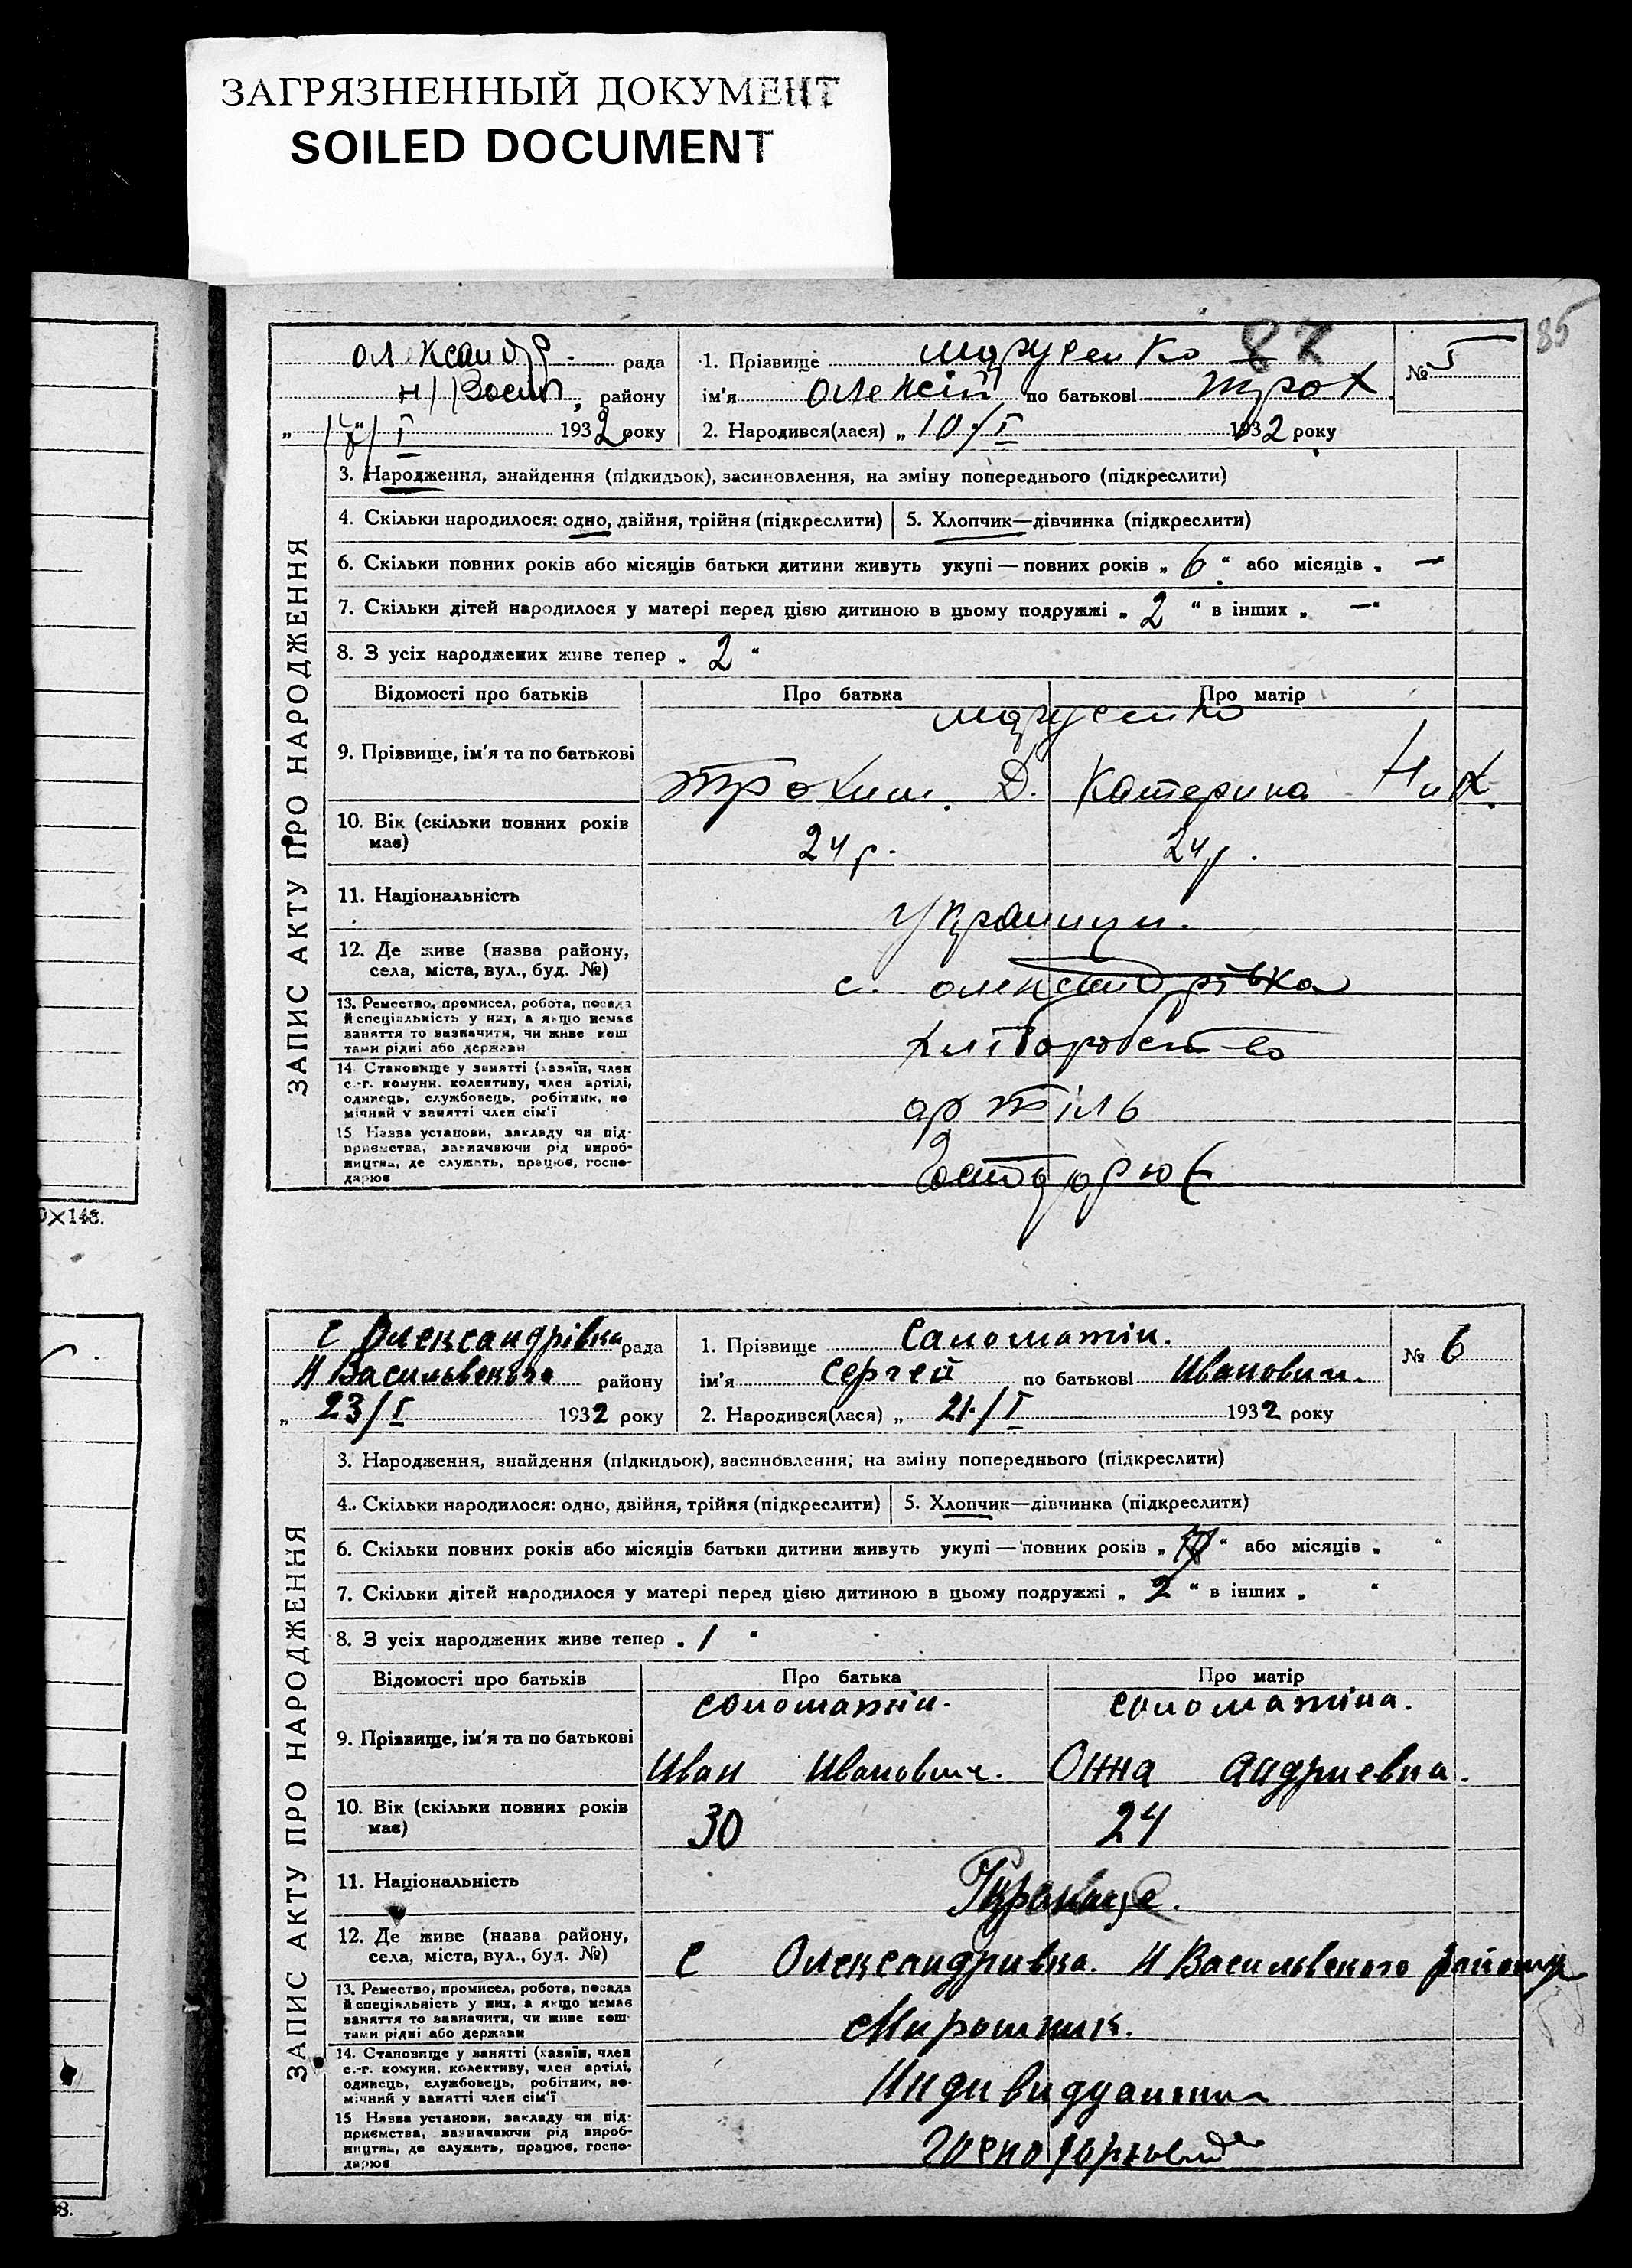 ЗАГРЯЗНЕННЫЙ ДОКУМЕНТ
SOILED DOCUMENT
85
87
Олександр. рада
Н/Васил. району
„17/I 1932 року
1. Прізвище Марусенко
ім'я Олексій по батькові Трох.
2. Народився(лася) „10/I 1932 року
№ 5
ЗАПИС АКТУ ПРО НАРОДЖЕННЯ
3. Народження, знайдення (підкидьок), засиновлення, на зміну попереднього (підкреслити)
4. Скільки народилося: одно, двійня, трійня (підкреслити) 5. Хлопчик—дівчинка (підкреслити)
6. Скільки повних років або місяців батьки дитини живуть укупі — повних років „ 6 “ або місяців „ —
7. Скільки дітей народилося у матері перед цією дитиною в цьому подружжі „ 2 “ в інших „ — “
8. З усіх народжених живе тепер „ 2 “
Відомості про батьків Про батька Про матір
Марусенко
9. Прізвище, ім'я та по батькові
Трохим. Д. Катерина Ник.
10. Вік (скільки повних років має)
24 р. 24 р.
11. Національність
Українци.
12. Де живе (назва району, села, міста, вул., буд. №)
с. Олександрівка
13. Ремество, промисел, робота, посада
й спеціяльність у них, а якщо немає
заняття то визначити, чи живе кош
тами рідні або держави
хліборобство
14 Становище у занятті (хазяїн, член
с.-г. комуни, колективу, член артілі,
одинець, службовець, робітник, по
мічний у занятті член сім'ї
артіль
15 Назва установи, закладу чи під-
приємства, зазначаючи рід вироб-
ництва, де служить, працює, госпо-
дарює
0×148.
С Олександрівка рада
Н Васильвского району
„ 23/I 1932 року
1. Прізвище Саломатін.
ім'я Сергей по батькові Иванович.
2. Народився(лася) „ 21/I 1932 року
№ 6
ЗАПИС АКТУ ПРО НАРОДЖЕННЯ
3. Народження, знайдення (підкидьок), засиновлення, на зміну попереднього (підкреслити)
4. Скільки народилося: одно, двійня, трійня (підкреслити) 5. Хлопчик—дівчинка (підкреслити)
6. Скільки повних років або місяців батьки дитини живуть укупі — повних років „ “ або місяців „ “
7. Скільки дітей народилося у матері перед цією дитиною в цьому подружжі „ 2 “ в інших „ “
8. З усіх народжених живе тепер „ 1 “
Відомості про батьків Про батька Про матір
Соломатін. Соломатіна.
9. Прізвище, ім'я та по батькові
Иван Иванович. Онна Андриевна.
10. Вік (скільки повних років має)
30 24
11. Національність
12. Де живе (назва району, села, міста, вул., буд. №)
С Олександривка. Н Васильвского району
13. Ремество, промисел, робота, посада
й спеціяльність у них, а якщо немає
заняття то зазначити, чи живе кош-
тами рідні або держави
Мирошник.
14. Становище у занятті (хазяїн, член
с.-г. комуни, колективу, член артілі,
одинець, службовець, робітник, по-
мічний у занятті член сім'ї
15 Назва установи, закладу чи під-
приємства, зазначаючи рід вироб-
ництва, де служить, працює, госпо-
дарює